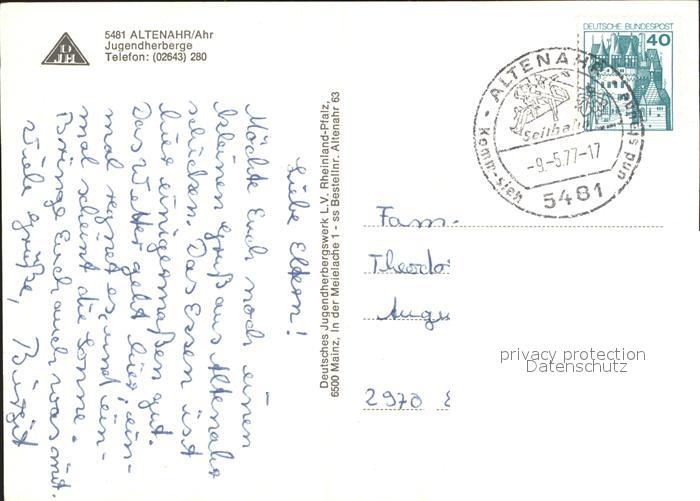 5481 ALTENAHR/Ahr
Jugendherberge
Telefon: (02643) 280
DJH
DEUTSCHE BUNDESPOST
40
ALTENAHR
Seilbahn
-9.-5.77-17
5481
Komm-sieh
und
Liebe Eltern!
Möchte Euch noch einen
kleinen Gruß aus Altenahr
schicken. Das Essen ist
hier einigermaßen gut.
Das Wetter geht hier, ein-
mal regnet es, und ein-
mal scheint die Sonne.
Bringe Euch auch was mit.
Viele Grüße, Birgit
Deutsches Jugendherbergswerk L.V. Rheinland-Pfalz,
6500 Mainz, In der Meielache 1 - ss Bestellnr. Altenahr 63
Fam.
Theodo
Augu
2970
privacy protection
Datenschutz